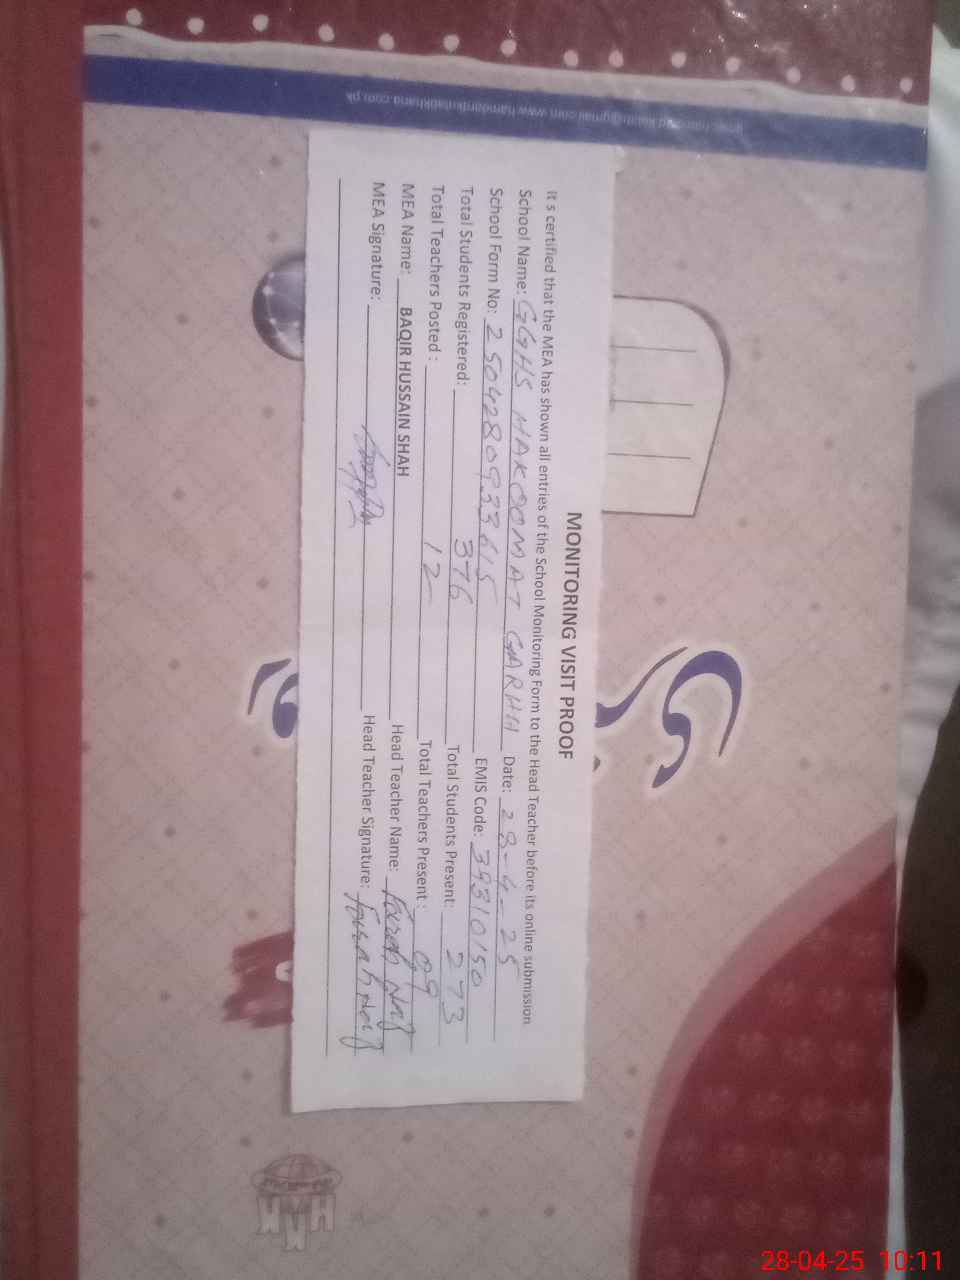 MONITORING VISIT PROOF
It s certified that the MEA has shown all entries of the School Monitoring Form to the Head Teacher before its online submission
School Name: GGHS HAKOOMAT GARHH Date: 28-4-25
School Form No: 25042809333615 EMIS Code: 39310150
Total Students Registered: 376 Total Students Present: 273
Total Teachers Posted : 12 Total Teachers Present : 09
MEA Name: BAQIR HUSSAIN SHAH Head Teacher Name: Farah Naz
MEA Signature: Head Teacher Signature: Farah Naz
28-04-25 10:11